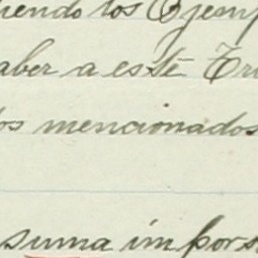 iendo los Ejemp
aber a este Tri
os mencionados
suma impor